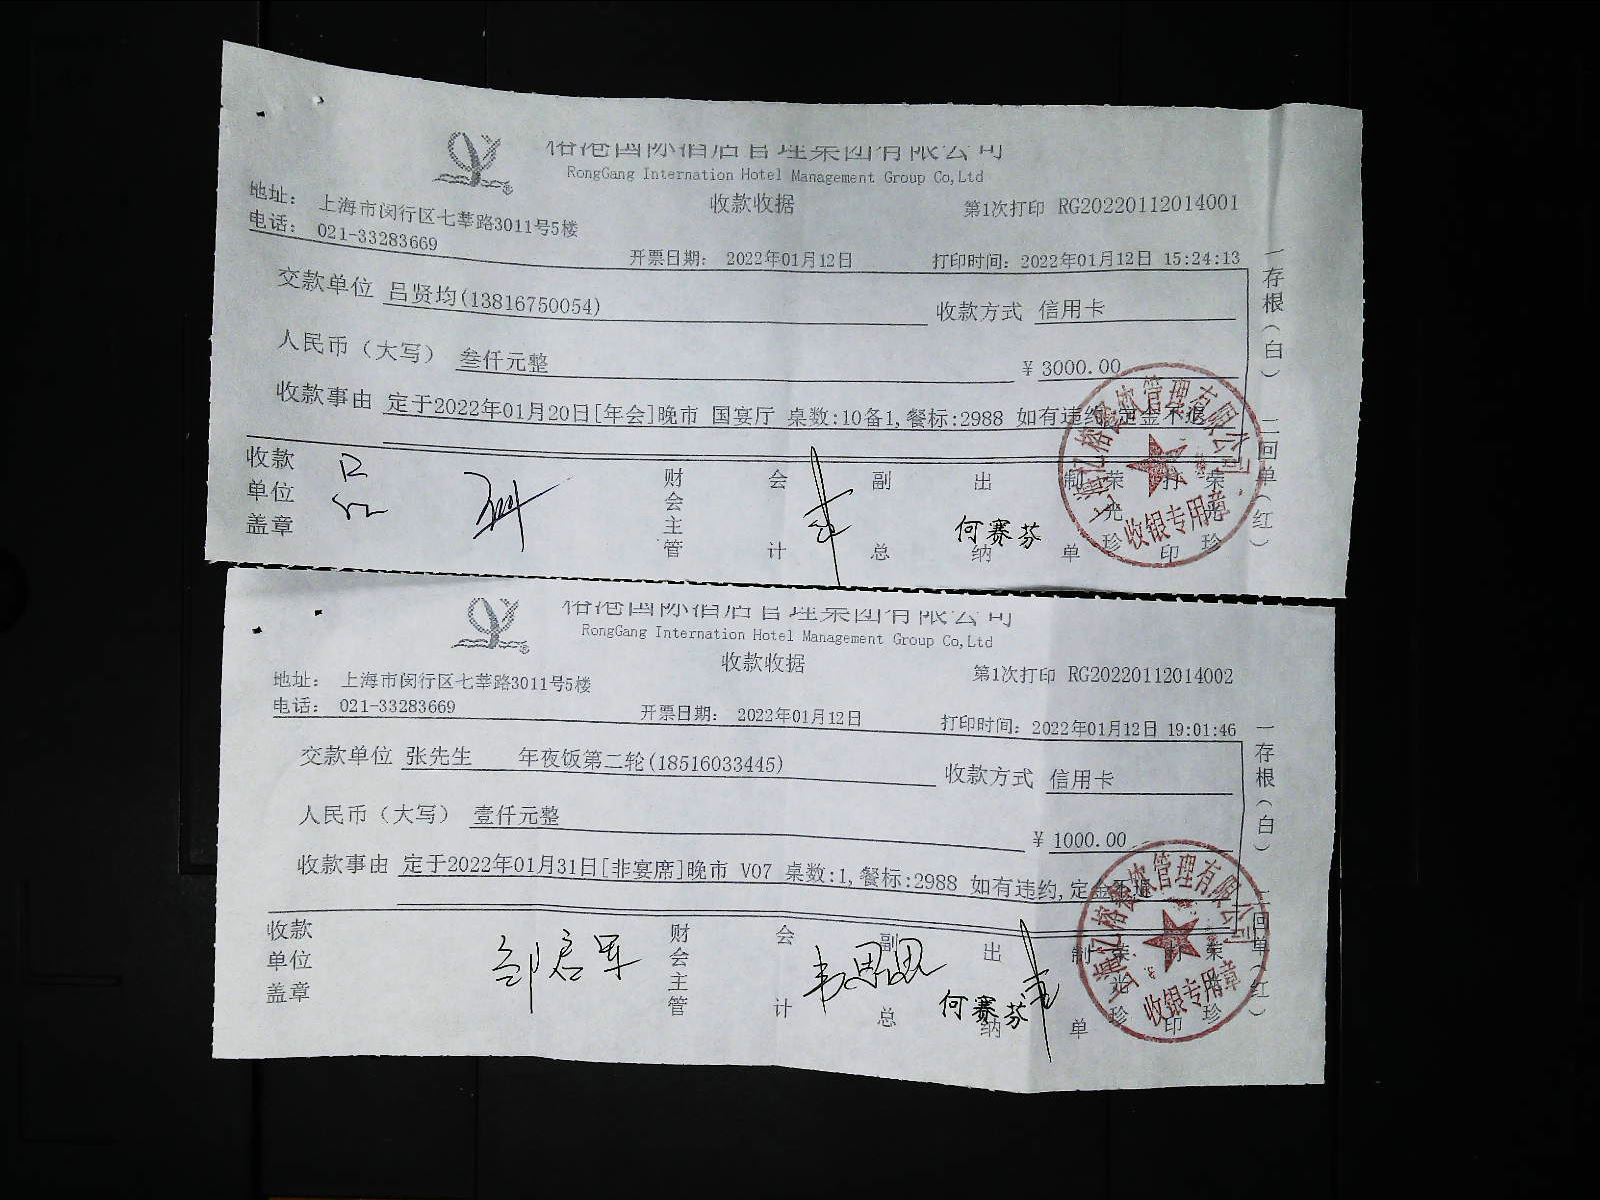 榕港国际酒店管理集团有限公司
RongGang Internation Hotel Management Group Co,Ltd
收款收据
第1次打印 RG20220112014001
地址： 上海市闵行区七莘路3011号5楼
电话： 021-33283669
开票日期： 2022年01月12日
打印时间：2022年01月12日 15:24:13
交款单位 吕贤均(13816750054)
收款方式 信用卡
人民币（大写） 叁仟元整
¥ 3000.00
收款事由 定于2022年01月20日[年会]晚市 国宴厅 桌数:10备1,餐标:2988 如有违约,定金不退
收款单位盖章
财会主管
会计
副总
出纳
何赛芬
制单
荣光珍
打印
荣光珍
一存根（白）
二回单（红）
收银专用章
榕港国际酒店管理集团有限公司
RongGang Internation Hotel Management Group Co,Ltd
收款收据
第1次打印 RG20220112014002
地址： 上海市闵行区七莘路3011号5楼
电话： 021-33283669
开票日期： 2022年01月12日
打印时间：2022年01月12日 19:01:46
交款单位 张先生 年夜饭第二轮(18516033445)
收款方式 信用卡
人民币（大写） 壹仟元整
¥ 1000.00
收款事由 定于2022年01月31日[非宴席]晚市 V07 桌数:1,餐标:2988 如有违约,定金不退
收款单位盖章
财会主管
会计
副总
出纳
何赛芬
制单
荣光珍
打印
荣光珍
一存根（白）
二回单（红）
收银专用章